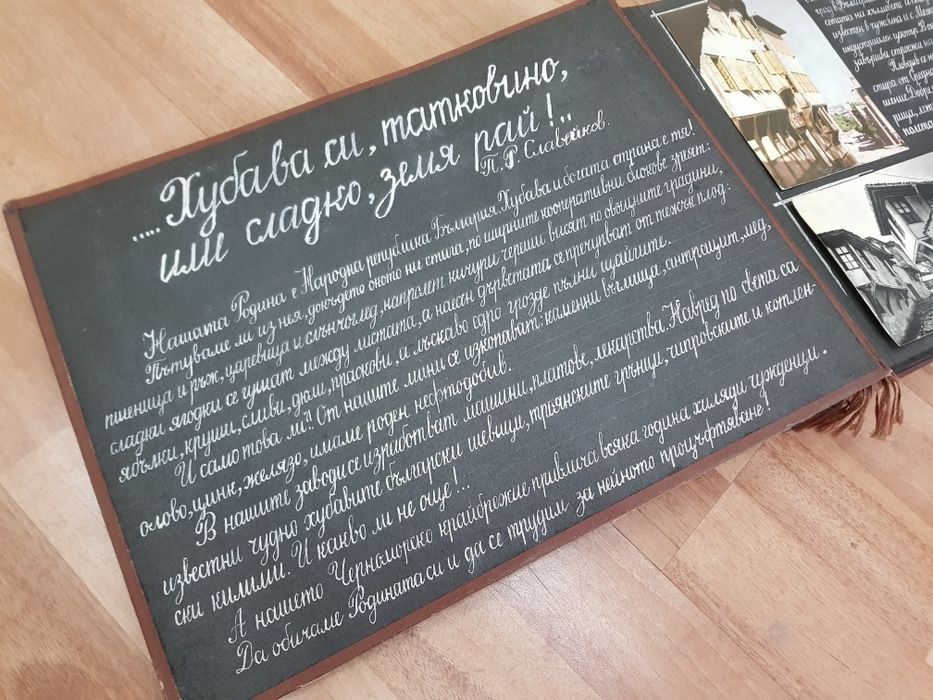 ..... Хубава си, татковино,
или сладко, земя рай!..
П. Р. Славейков.
Нашата Родина е Народна република България. Хубава и богата страна е тя!
Пътуваме ли из нея, докъдето окото ни стига, по ширните кооперативни блокове зреят:
пшеница и ръж, царевица и слънчоглед, напролет кичури череши висят по овощните градини,
сладки ягодки се гушат между листата, а насен дърветата се пречупват от тежък плод:
ябълки, круши, сливи, дюли, праскови, а лъскаво едро грозде пълни щайгите.
И само това ли?! От нашите мини се изкопават: каменни въглища, антрацит, мед,
олово, цинк, желязо, имаме роден нефтодобив.
В нашите заводи се изработват машини, платове, лекарства. Навред по света са
известни чудно хубавите български шевици, троянските грънци, чипровските и котлен-
ски килими. И какво ли не още!...
А нашето Черноморско крайбрежие привлича всяка година хиляди чужденци.
Да обичаме Родината си и да се трудим за нейното процъфтяване!
известен в чужбина и с
индустриален център.
завършва строежа на
Пловдив